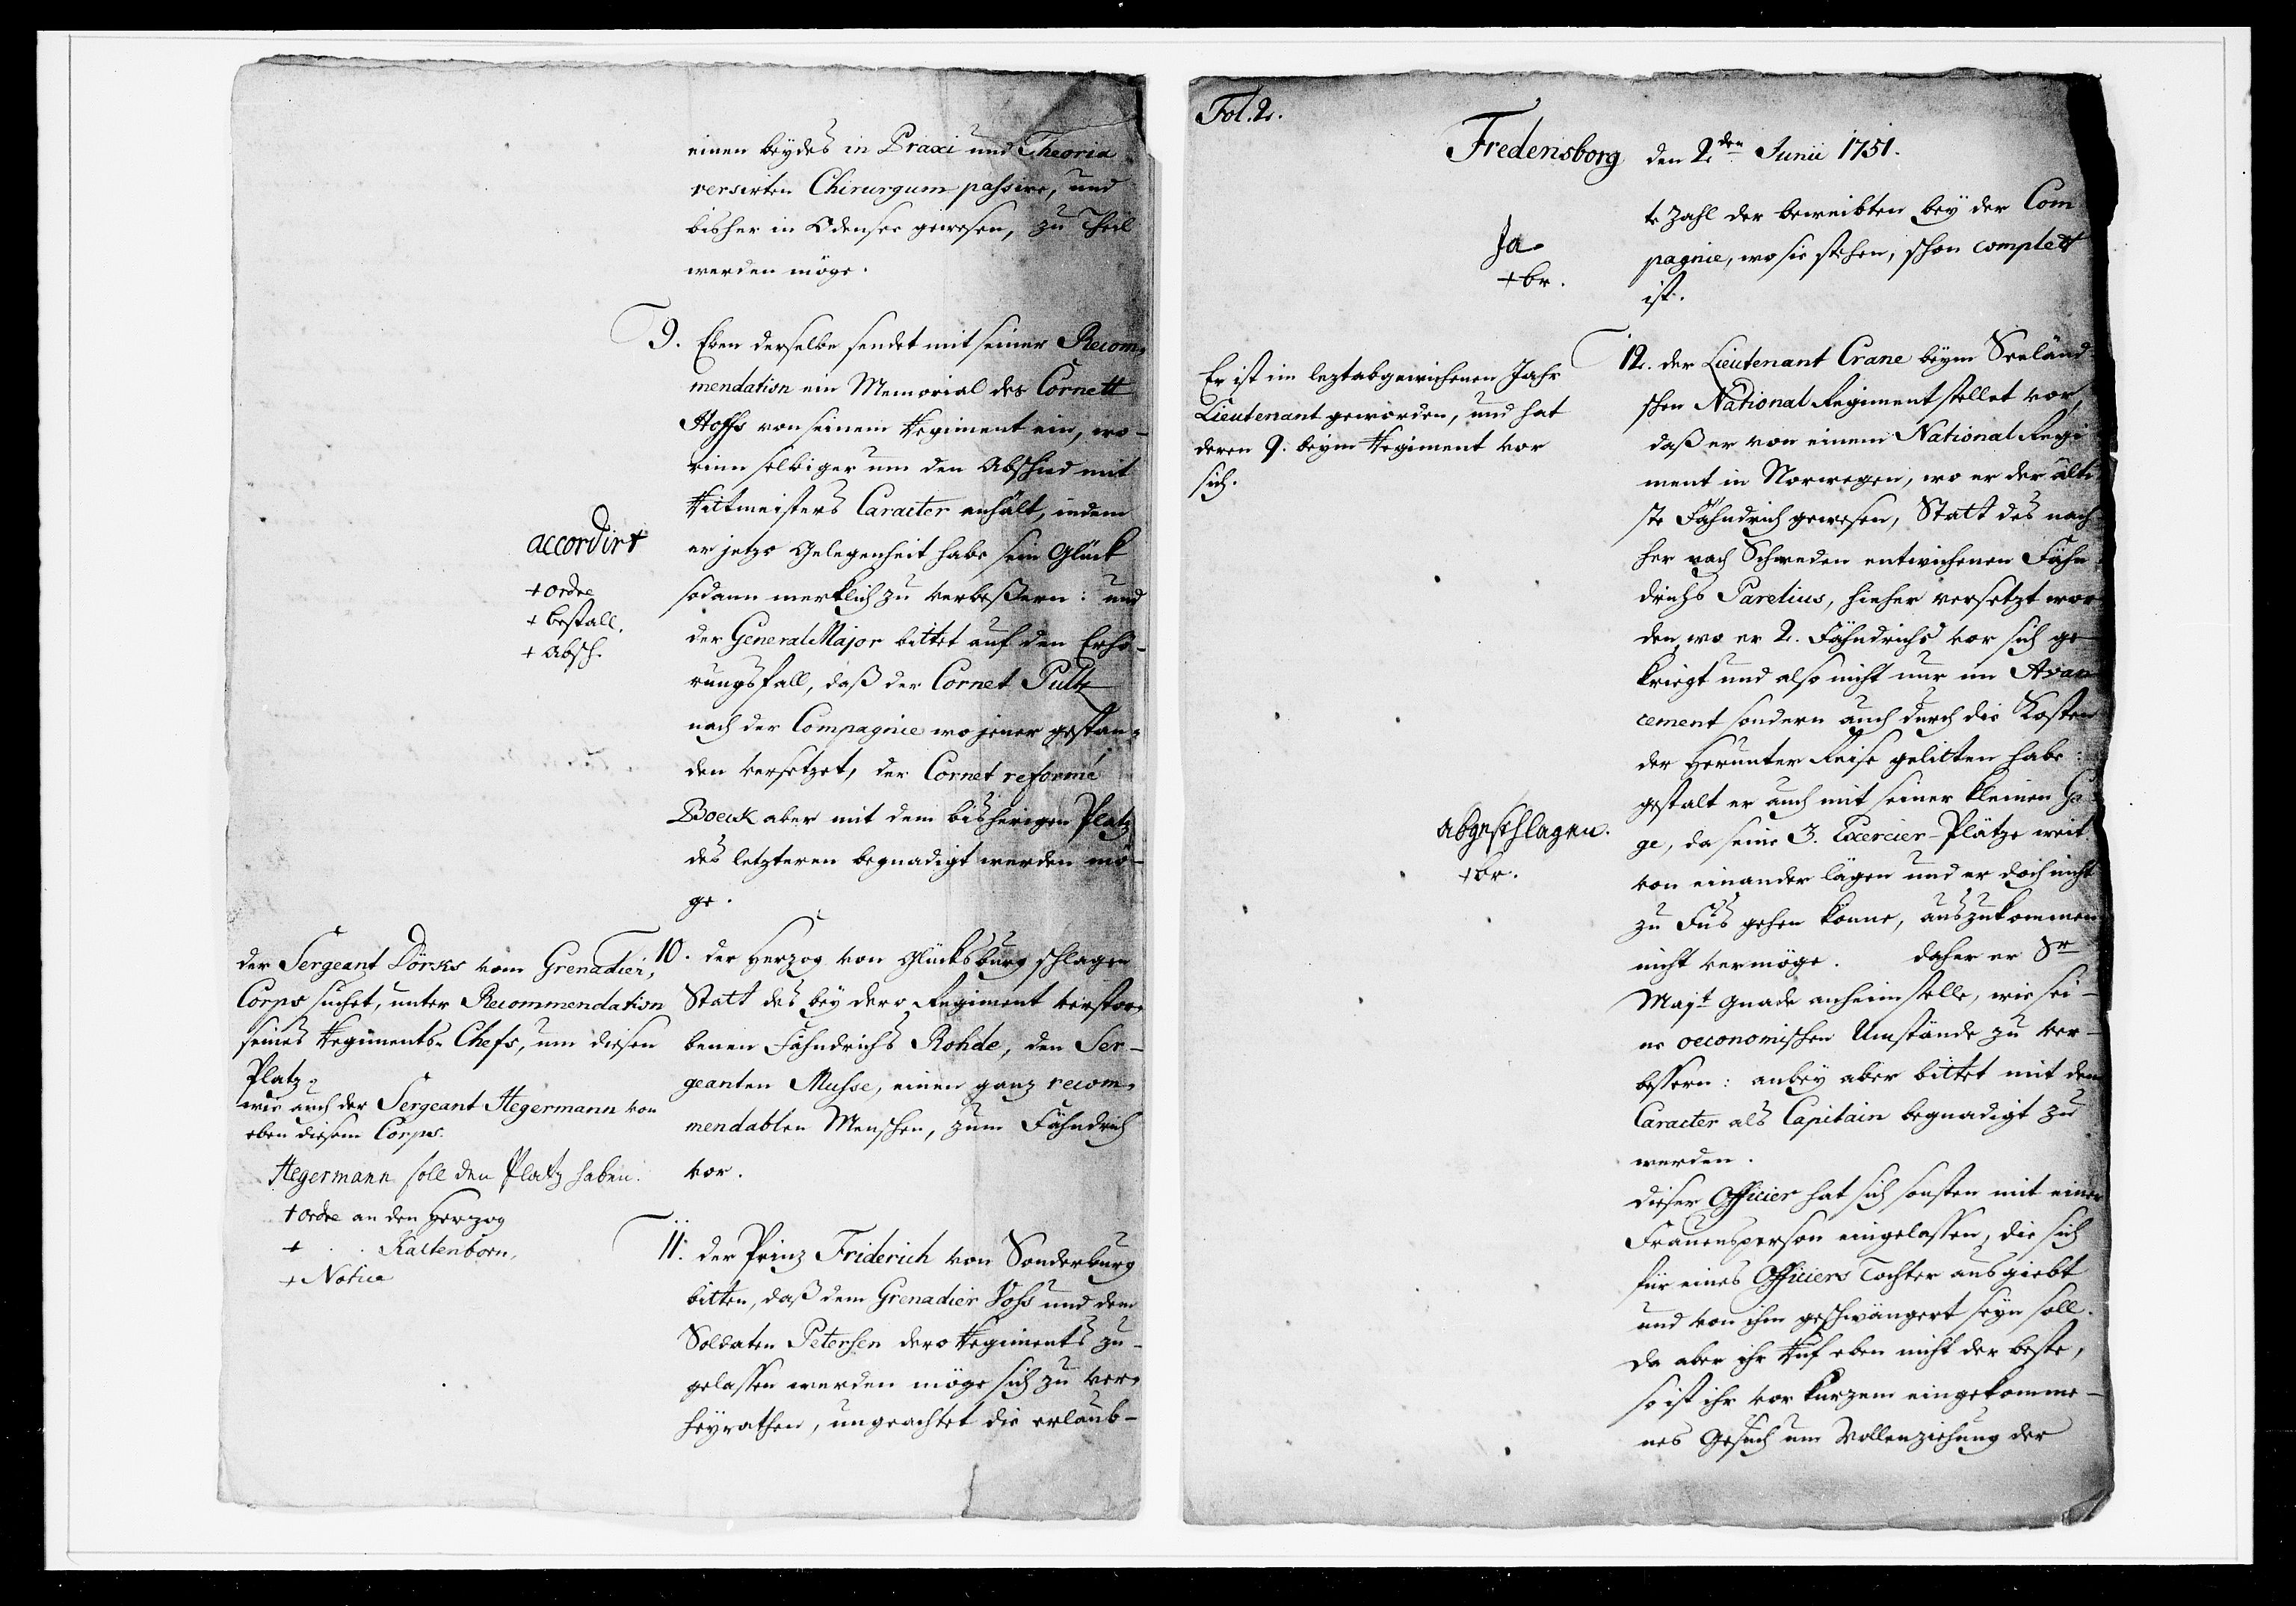 einen beydes in Praxi und Theoria
versirten Chirurgum passire, und
bisher in Odensee gewesen, zu Theil
werden möge.
9. Eben derselbe sendet mit seiner Recom-
mendation ein Memorial des Cornett
Hoffs von seinem Regiment ein, wo-
rinn selbiger um den Abschied mit
Rittmeisters Caracter anhält, indem
er jetzo Gelegenheit habe sein Glück
sodann merklich zu verbeßern: und
der General Major bittet auf den Erhö-
rungsfall, daß der Cornet Pultz
nach der Compagnie wo jener gestan-
den versetzet, der Cornet reformé
Boeck aber mit dem bisherigen Platz
des letzteren begnadigt werden mö-
ge.
accordirt
+ ordre
+ bestall.
+ Absch.
10. der Herzog von Glücksburg schlagen
Statt des bey dero Regiment verstor-
benen Fähndrichs Rohde, den Ser-
geanten Musse, einen ganz recom-
mendablen Menschen, zum Fähndrich
vor.
der Sergeant Dörks vom Grenadier-
Corps suchet, unter Recommendation
seines Regiments-Chefs, um diesen
Platz
wie auch der Sergeant Hegermann von
eben diesem Corps.
Hegermann soll den Platz haben.
+ ordre an den Herzog
+ . . Kaltenborn.
+ Notice
11. der Prinz Friderich von Sonderburg
bitten, daß dem Grenadier Voss und dem
Soldaten Petersen dero Regiments zu-
gelassen werden möge sich zu ver-
heyrathen, ungeachtet die erlaub-
Fol. 2.
Fredensborg den 2den Junii 1751.
te Zahl der beweibten bey der Com
pagnie, wo sie stehen, schon complett
ist.
Ja
+ br.
12. der Lieutenant Crane beym Seeländ-
schen National Regiment stellet vor,
daß er von einem National Regi
ment in Norwegen, wo er der älte
ste Fähndrich gewesen, Statt des nach
her nach Schweden entwichenen Fähn
drichs Parelius, hieher versetzt wor
den, wo er 2. Fähndrichs vor sich ge
kriegt und also nicht nur im Avan
cement sondern auch durch die Kosten
der Herunter Reise gelitten habe:
gestalt er auch mit seiner kleinen Ga
ge, da seine 3. Exercier-Plätze weit
von einander lägen und er doch nicht
zu Fus gehen könne, auszukommen
nicht vermöge. daher er Sr
Majt Gnade anheim stelle, wie sei-
ne oeconomischen Umstände zu ver-
bessern: anbey aber bittet mit dem
Caracter als Capitain begnadigt zu
werden.
dieser Officier hat sich sonsten mit einer
Frauensperson eingelassen, die sich
für eines Officiers Tochter ausgiebt
und von ihm geschwängert seyn soll.
da aber ihr Ruf eben nicht der beste,
so ist ihr vor kurzem eingekomme-
nes Gesuch um Vollenziehung der
Er ist im leztabgewichenen Jahr
Lieutenant geworden, und hat
deren 9. beym Regiment vor
sich.
abgeschlagen.
+ br.